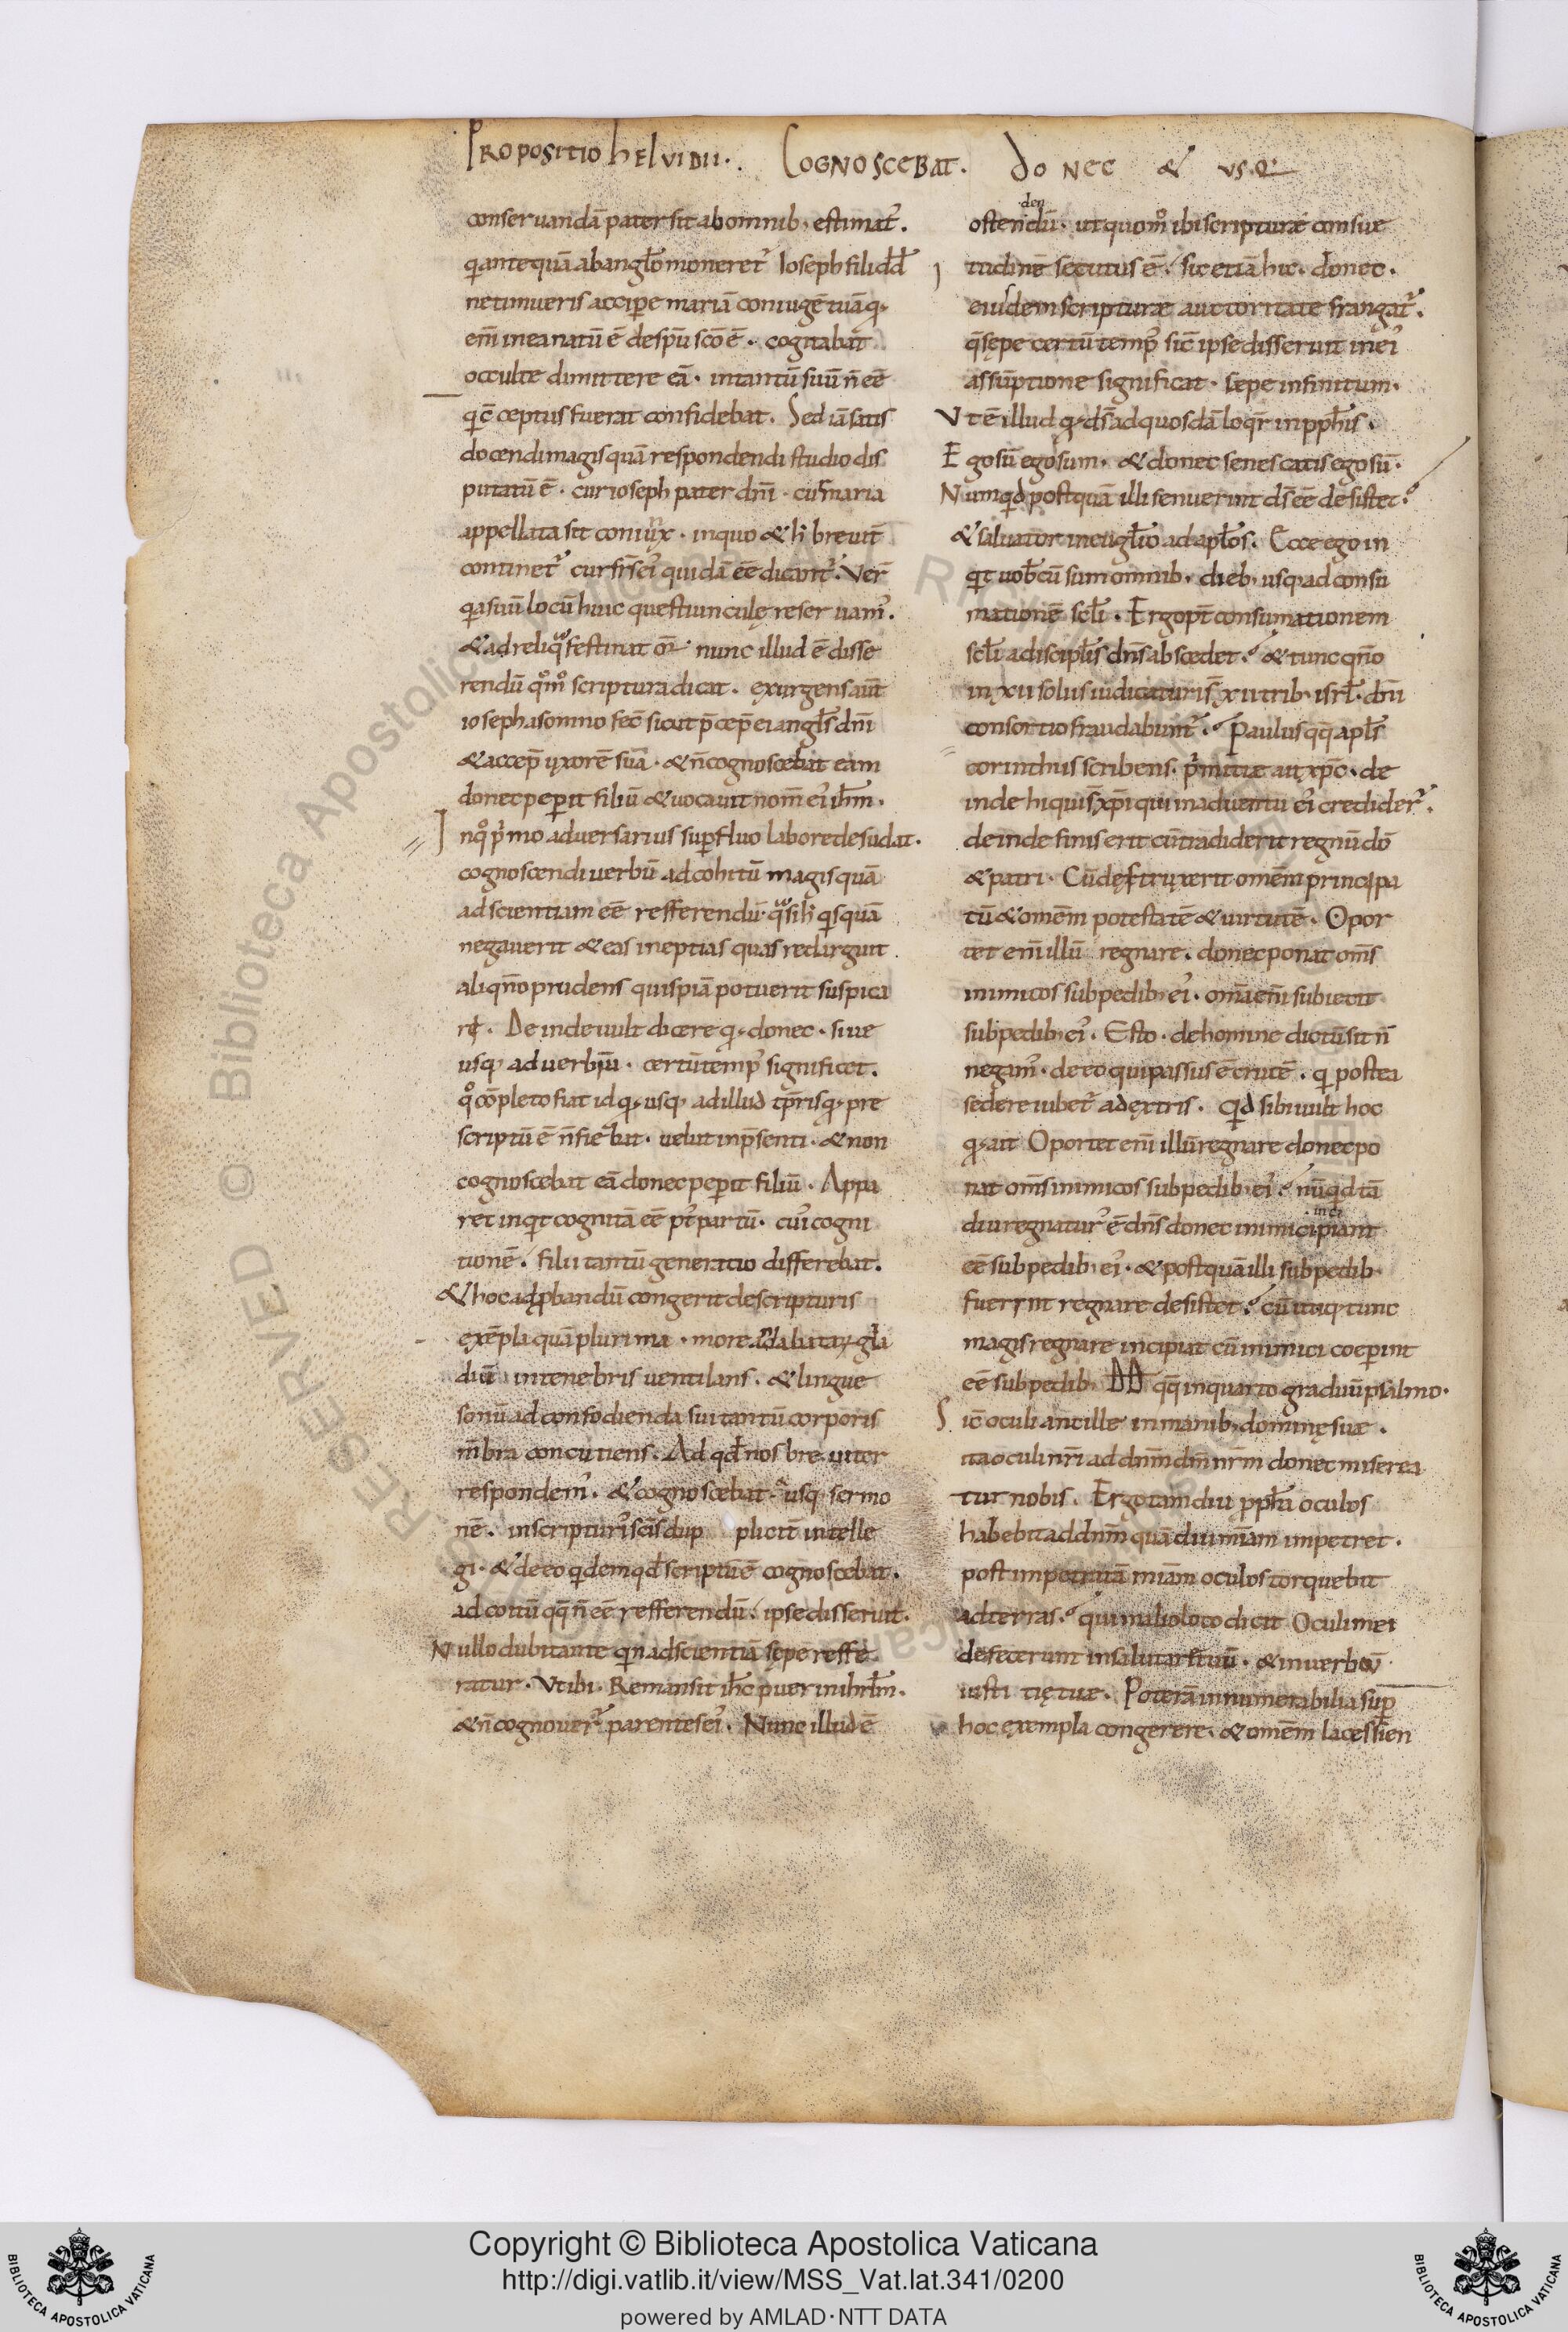 PROPOSITIO hELVIDII. COGNOSCEBAT. DONEC & VSQ:
conseruandā pater sit ab omnib; estimat᷑.
q̇ antequā ab anglo moneret᷑ Ioseph fili dd̄
ne timueris accipe mariā coniugē tuā q;
eni᷑ in ea natū ē de spū scō ē. cogitabat
occulte dimittere eā. intantū suū n̄ eē
q̇ c̄ceptus fuerat confidebat. Sed iā satis
docendi magis quā respondendi studio dis
putatū ē. cur ioseph pater dn̄i. cur maria
appellata sit coniux. in quo & h̓ breuit᷑
continet᷑ cur fr̄s ei᷑ quidā eē dicant᷑. Ver᷑
q̇a suū locū huic questiunculę reseruam᷑.
& ad reliqͣ festinat or̄ nunc illud ē disse
rendū qͦm̊ scriptura dicat. exurgens aut̄
ioseph a somno fec̄ sicut p̄cep̄ ei angl̄s dn̄i
& accep̄ uxorē suā. & n̄ cognoscebat eam
donec peperit filiū & uocauit nom̄ ei᷑ ih̄m.
In qͦ p̓mo aduersarius sup̄fluo labore desudat.
cognoscendi uerbū ad cohitū magis quā
ad scientiam eē refferendū. qͣsi h̓ q̇squā
negauerit & eas ineptias quas redarguit
aliqn̄o prudens quispiā potuerit suspica
ri. Deinde uult dicere q; donec. siue
usq; aduerbiū. certū temp᷑ significet.
qͦ cōpleto fiat id q; usq; ad illud tp̄ris q; pre
scriptū ē n̄ fiebat. uelut in p̄senti. & non
cognoscebat eā donec peperit filiū. Appa
ret inq̇t cognitā eē p᷑ partū. cui᷑ cogni
tionē. filii tantū generatio differebat.
& hoc ad p̱bandū congerit de scripturis
exēpla quā plurima. more andabatarū gla
diū in tenebris uentilans. & lingue
sonū ad confodienda sui tantū corporis
m̄bra concutiens. Ad qd̄ nos breuiter
respondem᷑. & cognoscebat & usq; sermo
nē. in scripturi᷑ scīs dup plicit᷑ intelle
gi. & de eo q̇dem qd̄ scriptū ē cognoscebat.
ad coitū qq̄ n̄ eē refferendū. ipse disseruit.
Nullo dubitante q̇n ad scientiā sępe reffe
ratur. Vt ibi. Remansit ih̄c puer in ihrl̄m.
& n̄ cognouer᷑ parentes ei᷑. Nunc illud ē
ostendendū. ut quom̊ ibi scripturæ consue
tudinē secutus ē. sic etiā hic. donec.
eiusdem scripturæ auctoritate frangat᷑.
q̄ sępe certū temp᷑ sic̄ ipse disseruit in ei᷑
assūptione significat. sępe infinitum.
Vt ē illud q; dš ad quosdā loqr̄ in pph̄is.
Ego sū ego sum. & donec senescatis ego sū.
Numq̇d postquā illi senuerint dš eē desistet?
& saluator in euglio ad apl̄os. Ecce ego in
q̇t uob̄cū sum omnib; dieb; usq; ad consu
mationē scl̄i. Ergo p᷑ consumationem
scl̄i a discipl̄is dn̄s abscedet? & tunc qn̄o
in xii soliis iudicaturi s̄ xii trib; isrl̄. dn̄i
consortio fraudabunt᷑? Paulus qq̄ apl̄s
corinthiis scribens. p̓mitiæ aut xp̄c. de
inde hi qui s̄ xp̄i qui in aduentu ei᷑ credider᷑.
deinde finis erit cū tradiderit regnū dō
& patri. Cū destruxerit omēm principa
tū & omēm potestatē & uirtutē. Opor
tet eni᷑ illū regnare. donec ponat om̄s
inimicos sub pedib; ei᷑. om̄a eni᷑ subiecit
sub pedib; ei᷑. Esto. de homine dictū sit n̄
negam᷑. de eo qui passus ē crucē. q̇ postea
sedere iubet᷑ ad dextris. Q̇d sibi uult hoc
q; ait Oportet eni᷑ illū regnare donec po
nat om̄s inimicos sub pedib; ei᷑? nūq̇d tā
diu regnatur᷑ ē dn̄s donec inimici incipiant
eē sub pedib; ei᷑. & postquā illi sub pedib;
fuerint regnare desistet? cū utiq; tunc
magis regnare incipiat cū inimici coeperint
eē sub pedib; DD̄ qq̄ in quarto graduū psalmo.
Sic̄ oculi ancille in manib; dominę suæ.
ita oculi nr̄i ad dnm̄ dm̄ nr̄m donec miserea
tur nobis. Ergo tamdiu pph̄a oculos
habebit ad dnm̄ quādiu mīam impetret.
post impetratā mīam oculos torquebit
ad terras? qui in alio loco dicit Oculi mei
defecerunt in salutare tuū. & in uerbū
iusti tię tuæ. Poterā innumerabilia sup̄
hoc exempla congerere. & omēm lacessien
RESERVED © Biblioteca Apostolica Vaticana
Copyright © Biblioteca Apostolica Vaticana
http://digi.vatlib.it/view/MSS_Vat.lat.341/0200
powered by AMLAD·NTT DATA
BIBLIOTECA APOSTOLICA VATICANA
BIBLIOTECA APOSTOLICA VATICANA